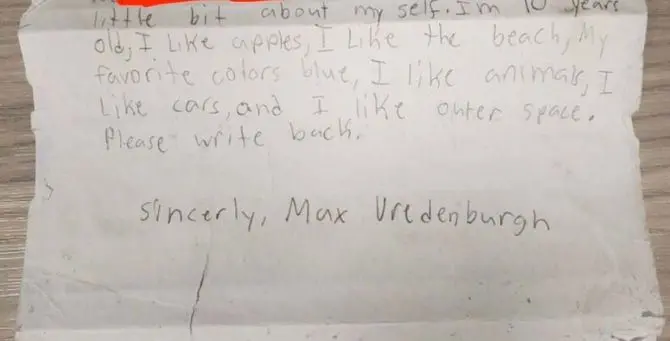 little bit about my self. Im 10 years
old, I Like apples, I Like the beach, My
favorite colors blue, I like animals, I
Like cars, and I like outer space.
Please write back.
sincerly, Max Vredenburgh